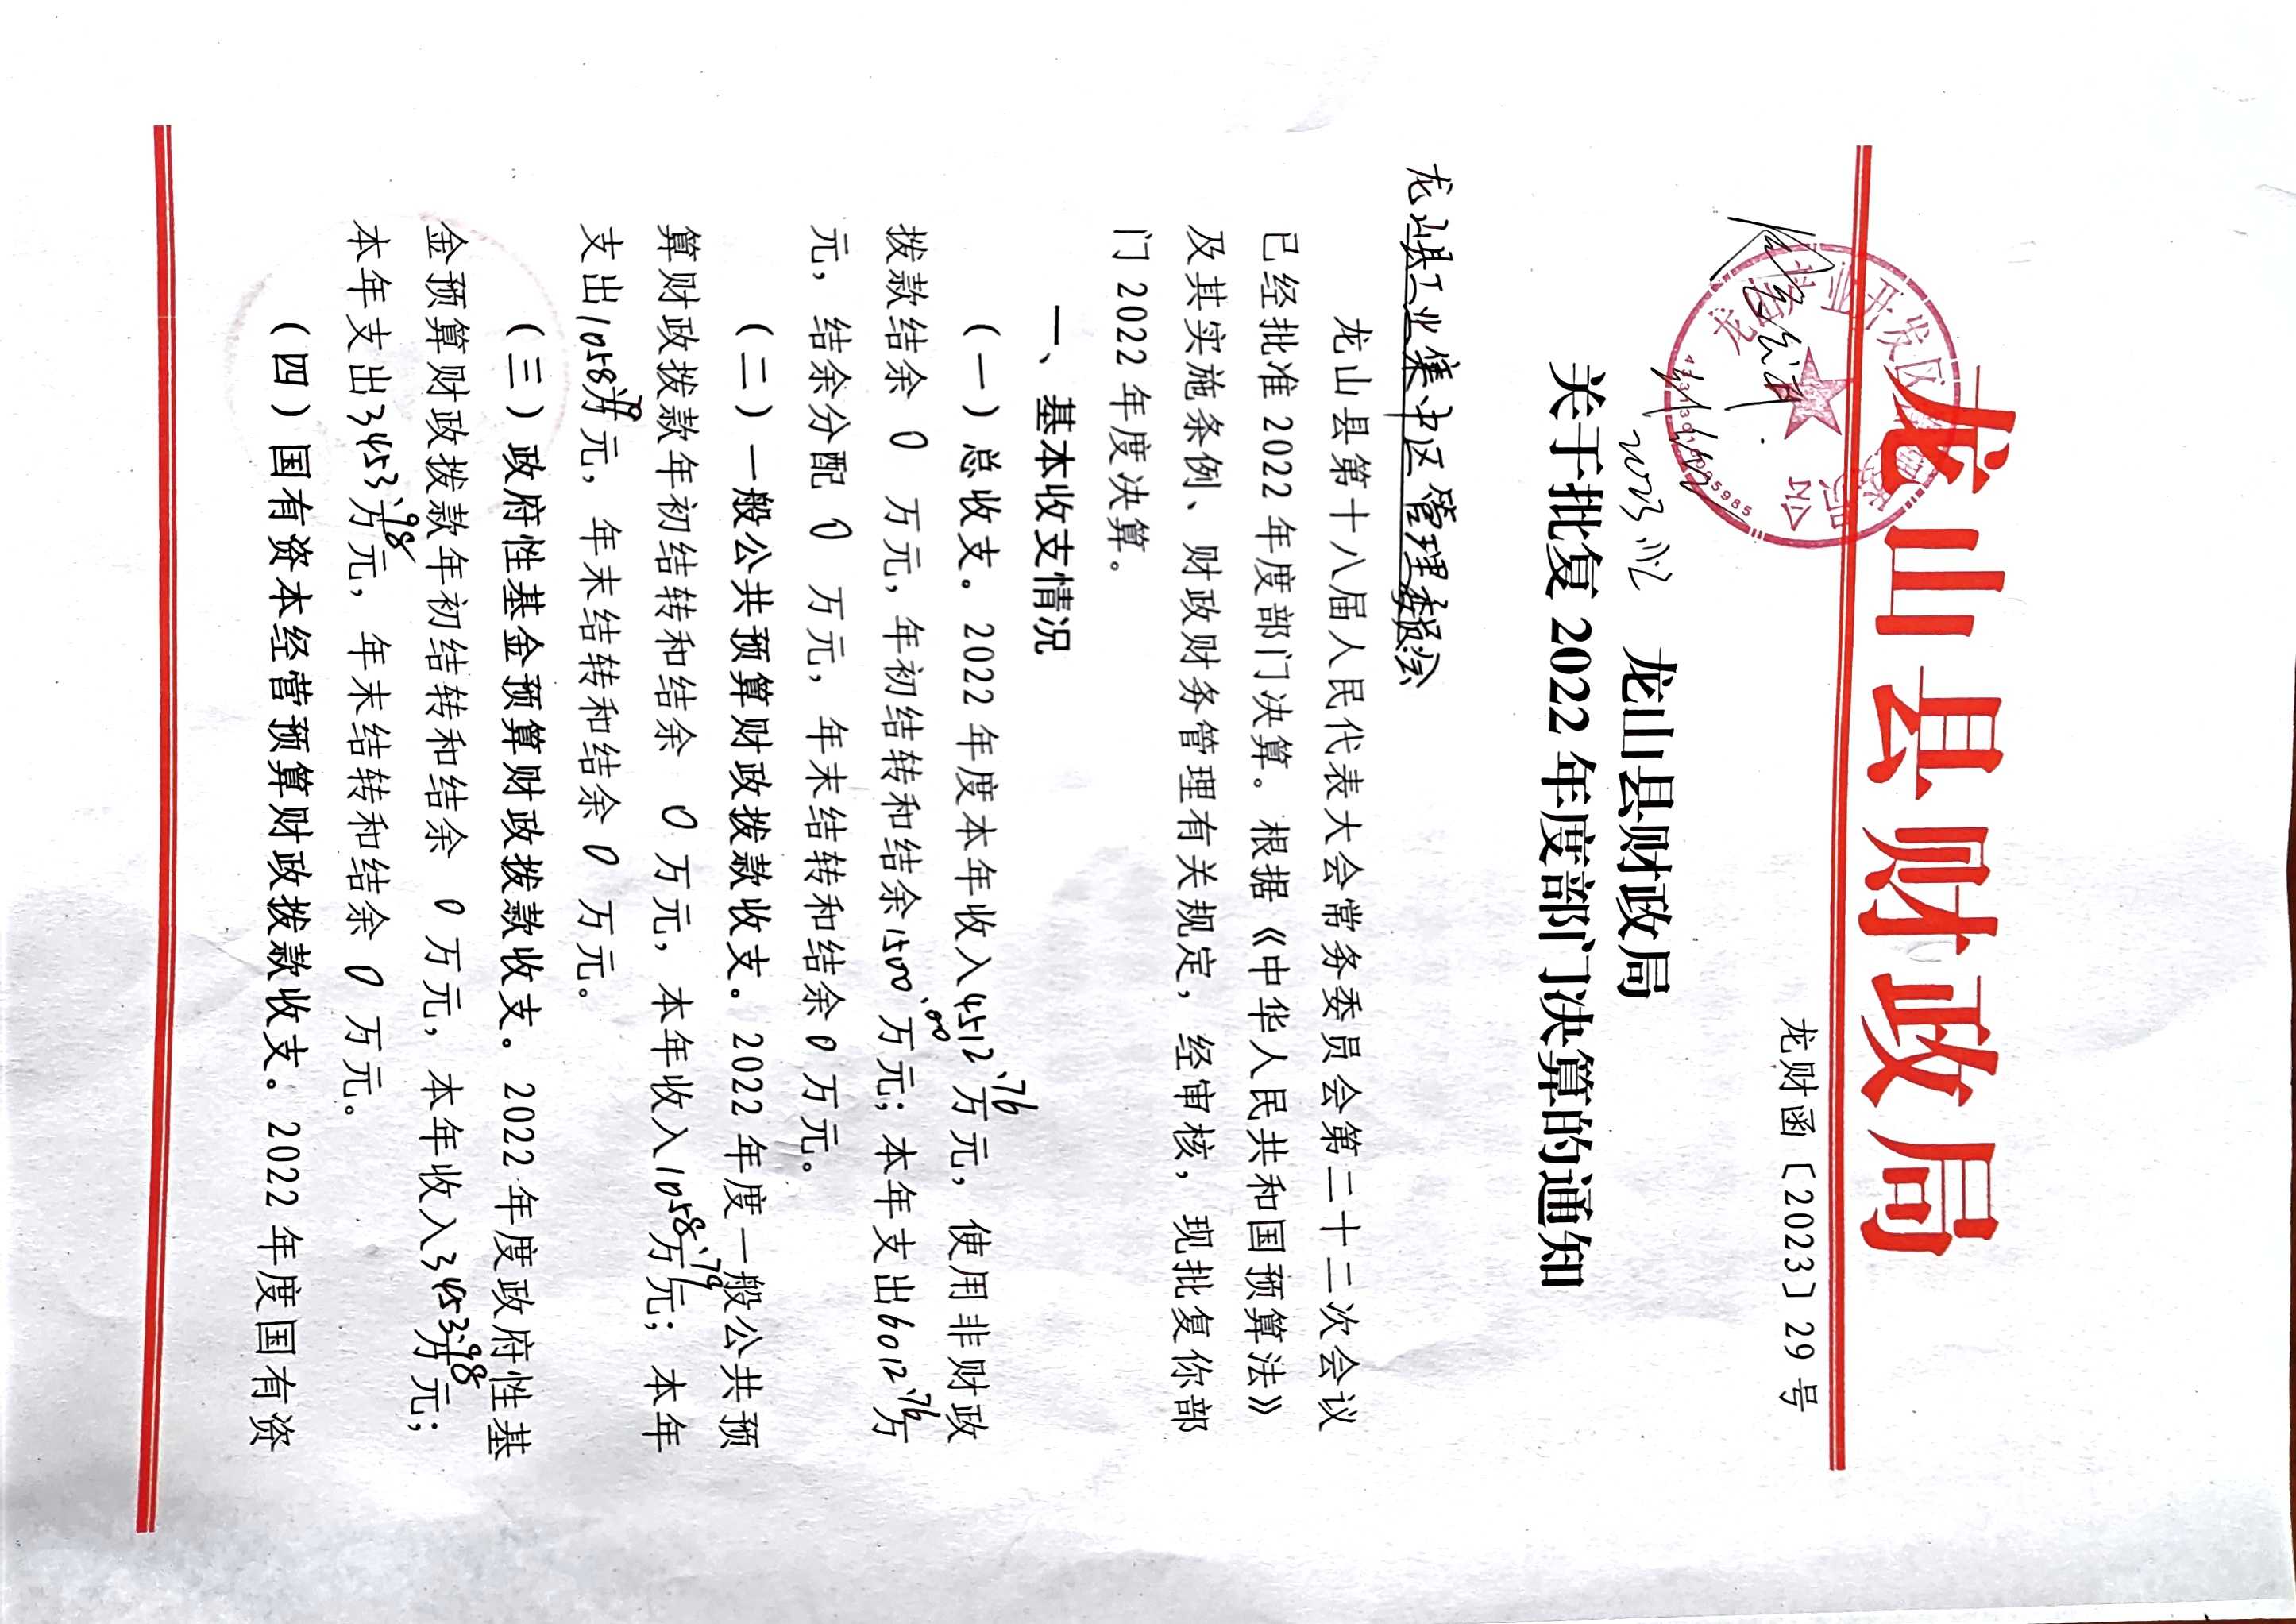 龙山县财政局
龙财函〔2023〕29 号
龙山县财政局
关于批复 2022 年度部门决算的通知
龙山县工业集中区管理委员会
龙山县第十八届人民代表大会常务委员会第二十二次会议
已经批准 2022 年度部门决算。根据《中华人民共和国预算法》
及其实施条例、财政财务管理有关规定，经审核，现批复你部
门 2022 年度决算。
一、基本收支情况
（一）总收支。2022 年度本年收入4512.76万元，使用非财政
拨款结余 0 万元，年初结转和结余1500.00万元；本年支出6012.76万
元，结余分配 0 万元，年末结转和结余 0 万元。
（二）一般公共预算财政拨款收支。2022 年度一般公共预
算财政拨款年初结转和结余 0 万元，本年收入1058.79万元；本年
支出1058.79万元，年末结转和结余 0 万元。
（三）政府性基金预算财政拨款收支。2022 年度政府性基
金预算财政拨款年初结转和结余 0 万元，本年收入3453.98万元；
本年支出3453.98万元，年末结转和结余 0 万元。
（四）国有资本经营预算财政拨款收支。2022 年度国有资